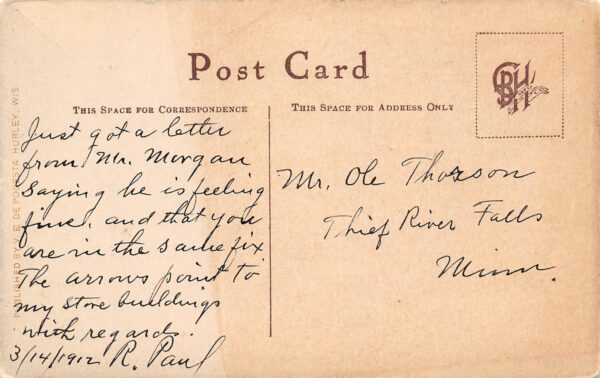 Post Card
THIS SPACE FOR CORRESPONDENCE
THIS SPACE FOR ADDRESS ONLY
Just got a letter
from Mr. Morgan
saying he is feeling
fine. and that you
are in the same fix.
The arrows point to
my store buildings
with regards.
3/14/1912 R. Paul
Mr. Ole Thorson
Thief River Falls
Minn.
PUBLISHED BY HURLEY, WIS.